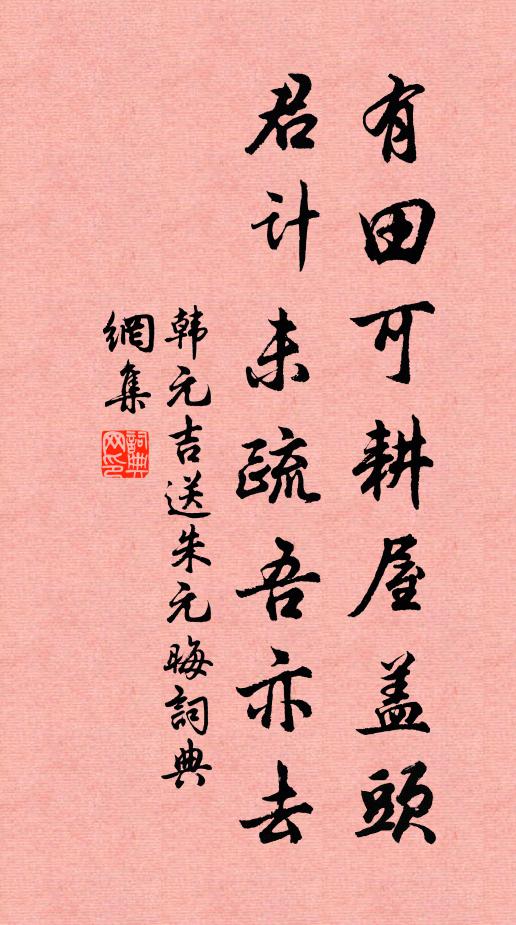 有田可耕屋盖頭
君计未疏吾亦去
韩元吉送朱元晦詞典
網集
詞典網印